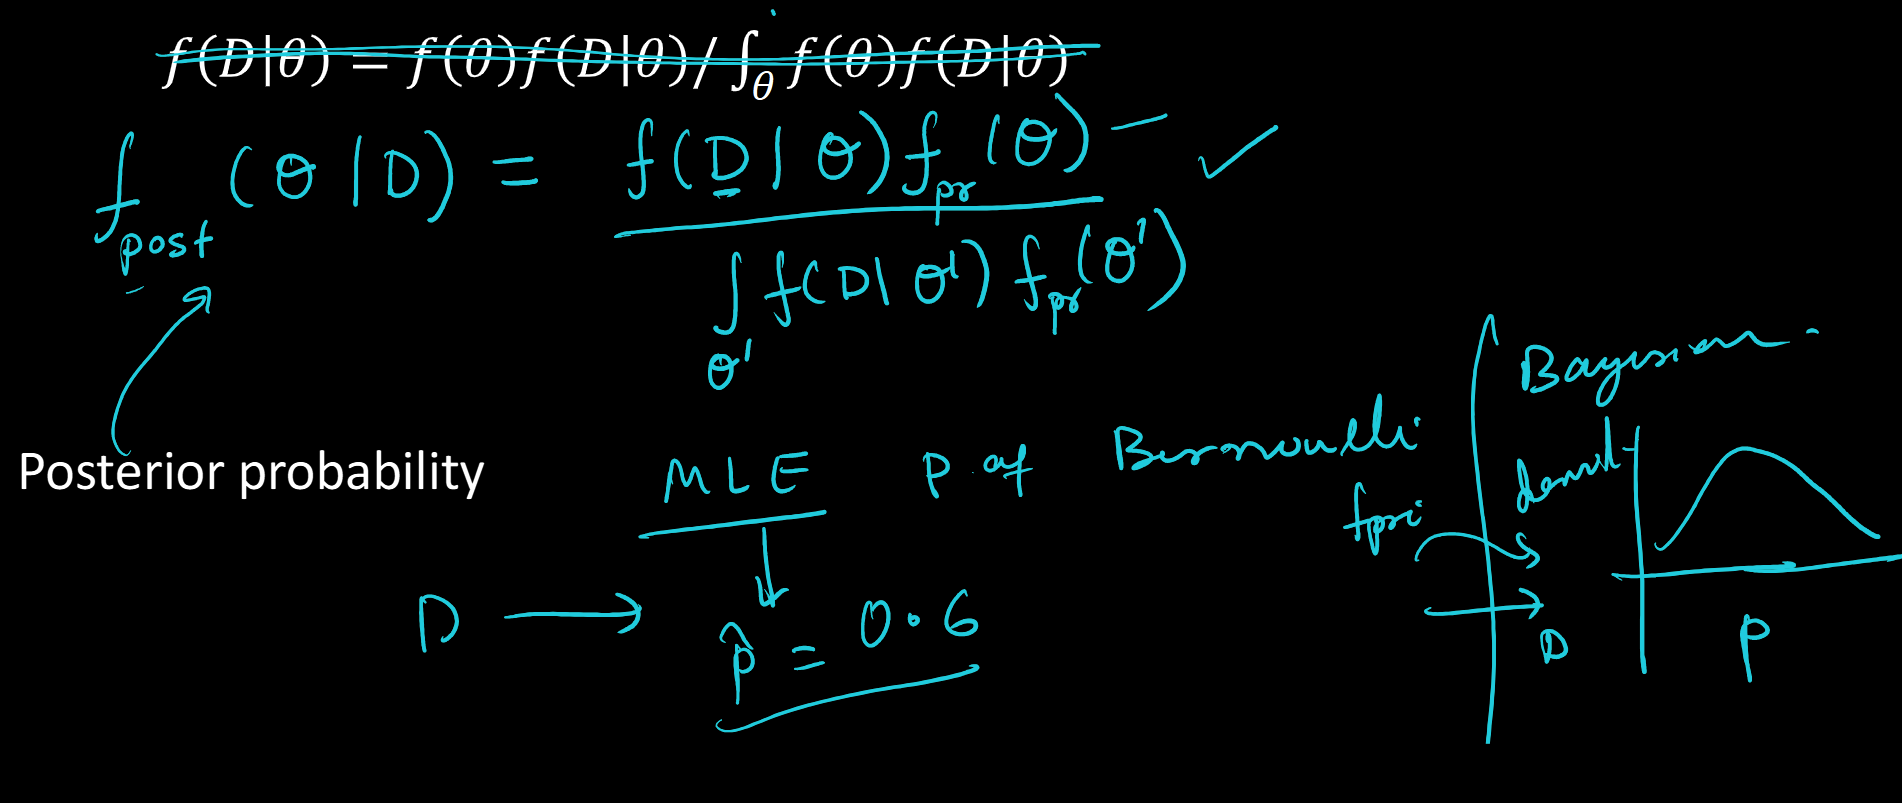 f(D|θ) = f(θ)f(D|θ)/∫_θ f(θ)f(D|θ)
f_post (θ|D) = f(D|θ) f_pr (θ)
∫_θ' f(D|θ') f_pr (θ')
Posterior probability
MLE p of Bernoulli
D → p̂ = 0.6
Bayesian
f_pri
D
p